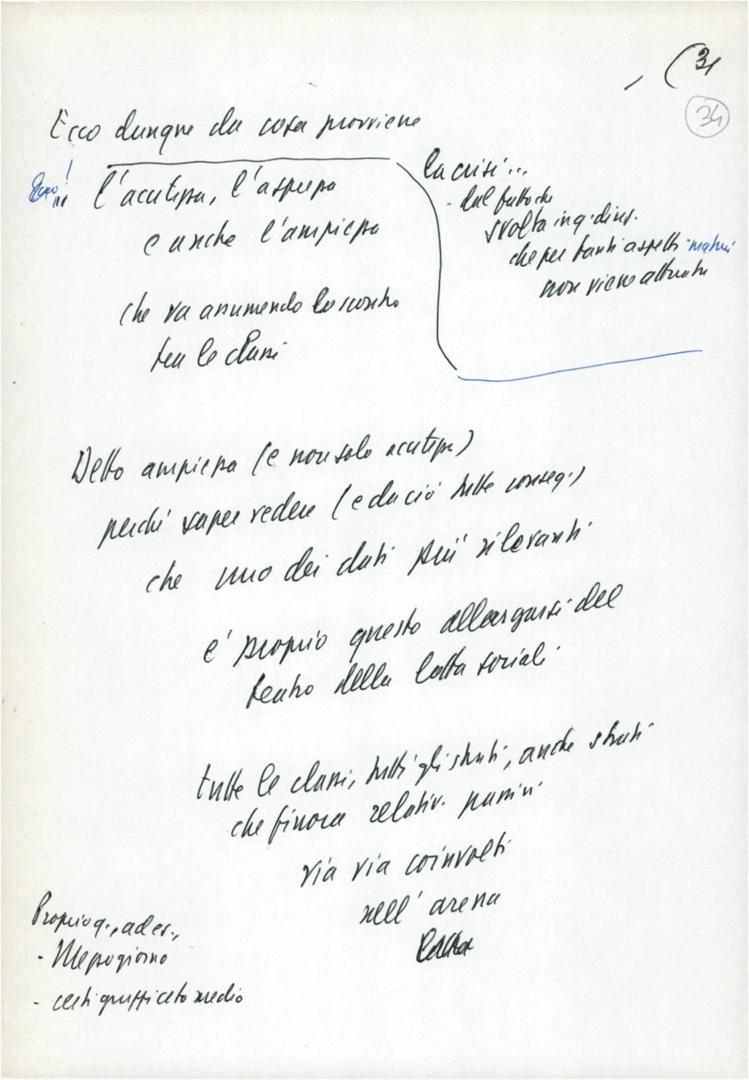 (31
34
Ecco dunque da cosa provviene
Ecco!
l'acutezza, l'asprezza
e anche l'ampiezza
che va assumendo lo scontro
tra le classi
la crisi...
- dal fatto che
svolta in q. direz.
che per tanti aspetti matura
non viene attuata
Detto ampiezza (e non solo acutezza)
perché saper vedere (e da ciò tutte conseg.)
che uno dei dati più rilevanti
è proprio questo allargarsi del
teatro della lotta sociale
tutte le classi, tutti gli strati, anche strati
che finora relativ. passivi
via via coinvolti
nell'arena
lotta
Proprio q., ad es.,
- Mezzogiorno
- certi gruppi ceto medio